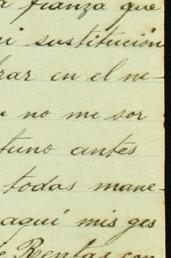 fianza que
sustitución
rar en el ne-
no me sor
tuno antes
todas mane-
aquí mis ges
Rentas con